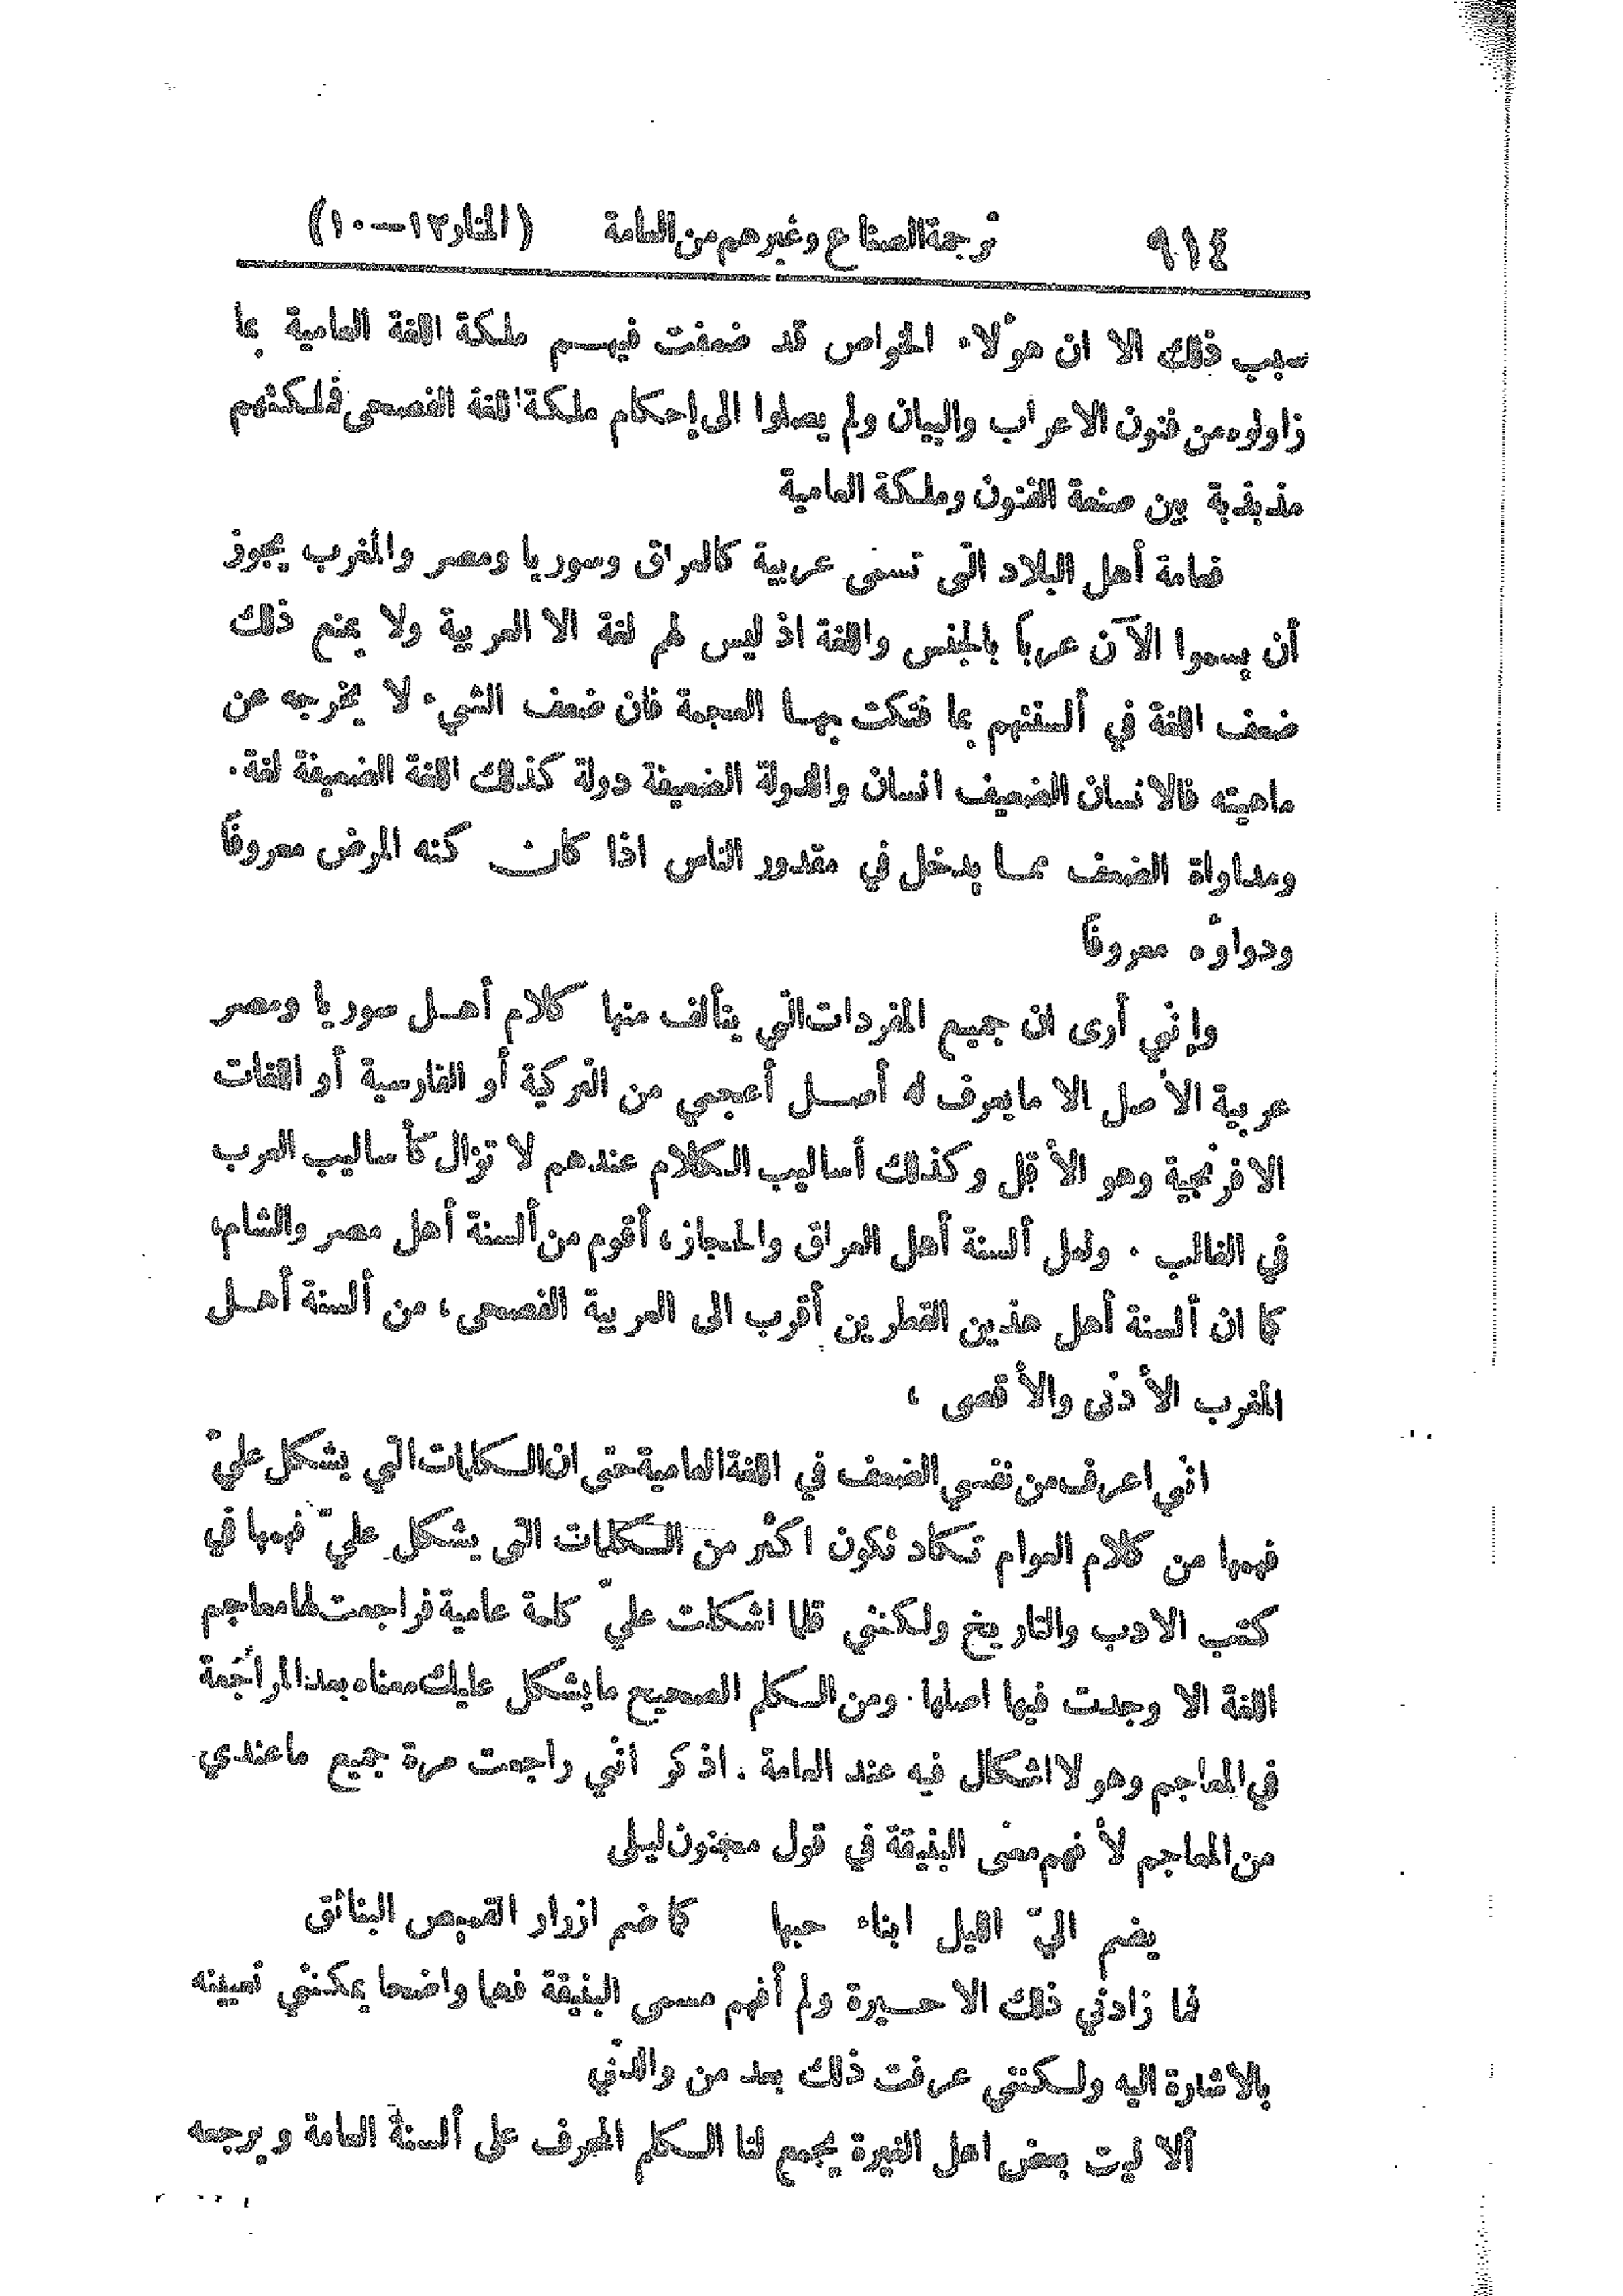 ٩١٤ ترجمة الصناع وغيرهم من العامة (المنار ١٢—١٠)
سبب ذلك الا ان هؤلاء الخواص قد ضعفت فيهم ملكة اللغة العامية بما
زاولوه من فنون الاعراب والبيان ولم يصلوا الى إحكام ملكة اللغة الفصحى فملكتهم
مذبذبة بين صنعة الفنون وملكة العامية
فعامة أهل البلاد التي تسمى عربية كالعراق وسوريا ومصر والمغرب يجوز
أن يسموا الآن عرباً بالجنس واللغة اذ ليس لهم لغة الا العربية ولا يمنع ذلك
ضعف اللغة في ألسنتهم بما فتكت بها العجمة فان ضعف الشيء لا يخرجه عن
ماهيته فالانسان الضعيف انسان والدولة الضعيفة دولة كذلك اللغة الضعيفة لغة.
ومداواة الضعف مما يدخل في مقدور الناس اذا كان كنه المرض معروفاً
ودواؤه معروفاً
وإني أرى ان جميع المفردات التي يتألف منها كلام أهل سوريا ومصر
عربية الأصل الا ما يعرف له أصل أعجمي من التركية أو الفارسية أو اللغات
الافرنجية وهو الأقل وكذلك أساليب الكلام عندهم لا تزال كأساليب العرب
في الغالب . ولعل ألسنة أهل العراق والحجاز، أقوم من ألسنة أهل مصر والشام،
كما ان ألسنة أهل هذين القطرين أقرب الى العربية الفصحى، من ألسنة أهل
المغرب الأدنى والأقصى ،
اني اعرف من نفسي الضعف في اللغة العامية حتى ان الكلمات التي يشكل عليّ
فهمها من كلام العوام تكاد تكون اكثر من الكلمات التي يشكل عليّ فهمها في
كتب الادب والتاريخ ولكنني قلما اشكلت عليّ كلمة عامية فراجعت لها معاجم
اللغة الا وجدت فيها اصلها. ومن الكلم الصحيح ما يشكل عليك معناه بعد المراجعة
في المعاجم وهو لا اشكال فيه عند العامة . اذكر اني راجعت مرة جميع ما عندي
من المعاجم لأفهم معنى البنيقة في قول مجنون ليلى
يضم اليّ الليل ابناء حبها كما ضم ازرار القميص البنائق
فما زادني ذلك الا حيرة ولم أفهم مسمى البنيقة فهما واضحا يمكنني تعيينه
بالاشارة اليه ولكنني عرفت ذلك بعد من والدتي
ألا ليت بعض اهل الغيرة يجمع لنا الكلم المحرف على ألسنة العامة ويرجعه